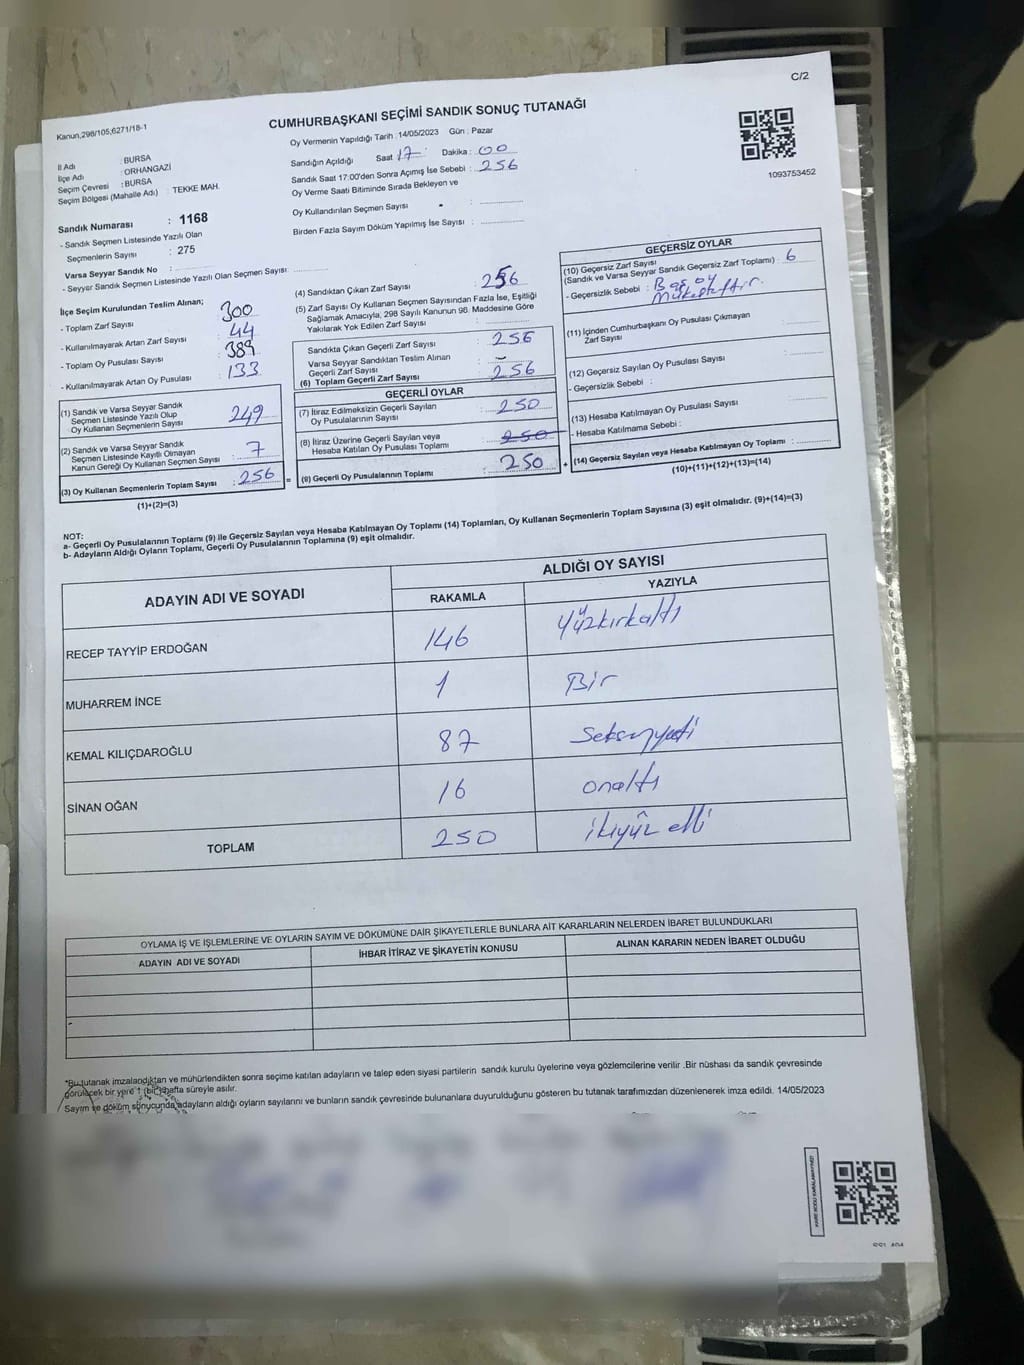 C/2
Kanun,298/105,6271/18-1
CUMHURBAŞKANI SEÇİMİ SANDIK SONUÇ TUTANAĞI
Oy Vermenin Yapıldığı Tarih : 14/05/2023 Gün : Pazar
İl Adı : BURSA
İlçe Adı : ORHANGAZİ
Seçim Çevresi : BURSA
Seçim Bölgesi (Mahalle Adı) : TEKKE MAH.
Sandığın Açıldığı Saat 17 Dakika : 00
Sandık Saat 17:00'den Sonra Açımış İse Sebebi : 256
Oy Verme Saati Bitiminde Sırada Bekleyen ve
Oy Kullandırılan Seçmen Sayısı
Birden Fazla Sayım Döküm Yapılmış İse Sayısı :
1093753452
Sandık Numarası : 1168
- Sandık Seçmen Listesinde Yazılı Olan
Seçmenlerin Sayısı : 275
Varsa Seyyar Sandık No :
- Seyyar Sandık Seçmen Listesinde Yazılı Olan Seçmen Sayısı:
İlçe Seçim Kurulundan Teslim Alınan;
- Toplam Zarf Sayısı : 300
- Kullanılmayarak Artan Zarf Sayısı : 44
- Toplam Oy Pusulası Sayısı : 389
- Kullanılmayarak Artan Oy Pusulası : 133
(1) Sandık ve Varsa Seyyar Sandık
Seçmen Listesinde Yazılı Olup
Oy Kullanan Seçmenlerin Sayısı : 249
(2) Sandık ve Varsa Seyyar Sandık
Seçmen Listesinde Kayıtlı Olmayan
Kanun Gereği Oy Kullanan Seçmen Sayısı : 7
(3) Oy Kullanan Seçmenlerin Toplam Sayısı : 256
(1)+(2)=(3)
(4) Sandıktan Çıkan Zarf Sayısı : 256
(5) Zarf Sayısı Oy Kullanan Seçmen Sayısından Fazla İse, Eşitliği
Sağlamak Amacıyla, 298 Sayılı Kanunun 98. Maddesine Göre
Yakılarak Yok Edilen Zarf Sayısı :
Sandıkta Çıkan Geçerli Zarf Sayısı : 256
Varsa Seyyar Sandıktan Teslim Alınan
Geçerli Zarf Sayısı : -
(6) Toplam Geçerli Zarf Sayısı : 256
GEÇERLİ OYLAR
(7) İtiraz Edilmeksizin Geçerli Sayılan
Oy Pusulalarının Sayısı : 250
(8) İtiraz Üzerine Geçerli Sayılan veya
Hesaba Katılan Oy Pusulası Toplamı : 250
(9) Geçerli Oy Pusulalarının Toplamı : 250
GEÇERSİZ OYLAR
(10) Geçersiz Zarf Sayısı
(Sandık ve Varsa Seyyar Sandık Geçersiz Zarf Toplamı) : 6
- Geçersizlik Sebebi : Boş oy
(11) İçinden Cumhurbaşkanı Oy Pusulası Çıkmayan
Zarf Sayısı :
(12) Geçersiz Sayılan Oy Pusulası Sayısı :
- Geçersizlik Sebebi :
(13) Hesaba Katılmayan Oy Pusulası Sayısı :
- Hesaba Katılmama Sebebi :
(14) Geçersiz Sayılan veya Hesaba Katılmayan Oy Toplamı :
(10)+(11)+(12)+(13)=(14)
NOT:
a- Geçerli Oy Pusulalarının Toplamı (9) ile Geçersiz Sayılan veya Hesaba Katılmayan Oy Toplamı (14) Toplamları, Oy Kullanan Seçmenlerin Toplam Sayısına (3) eşit olmalıdır. (9)+(14)=(3)
b- Adayların Aldığı Oyların Toplamı, Geçerli Oy Pusulalarının Toplamına (9) eşit olmalıdır.
ADAYIN ADI VE SOYADI ALDIĞI OY SAYISI
RAKAMLA YAZIYLA
RECEP TAYYİP ERDOĞAN 146 Yüzkırkaltı
MUHARREM İNCE 1 Bir
KEMAL KILIÇDAROĞLU 87 Seksenyedi
SİNAN OĞAN 16 onaltı
TOPLAM 250 ikiyüz elli
OYLAMA İŞ VE İŞLEMLERİNE VE OYLARIN SAYIM VE DÖKÜMÜNE DAİR ŞİKAYETLERLE BUNLARA AİT KARARLARIN NELERDEN İBARET BULUNDUKLARI
ADAYIN ADI VE SOYADI İHBAR İTİRAZ VE ŞİKAYETİN KONUSU ALINAN KARARIN NEDEN İBARET OLDUĞU
*Bu tutanak imzalandıktan ve mühürlendikten sonra seçime katılan adayların ve talep eden siyasi partilerin sandık kurulu üyelerine veya gözlemcilerine verilir .Bir nüshası da sandık çevresinde
görülecek bir yere 1 (bir) hafta süreyle asılır.
Sayım ve döküm sonucunda adayların aldığı oyların sayılarını ve bunların sandık çevresinde bulunanlara duyurulduğunu gösteren bu tutanak tarafımızdan düzenlenerek imza edildi. 14/05/2023
KARE KODU KARALAMAYINIZ!